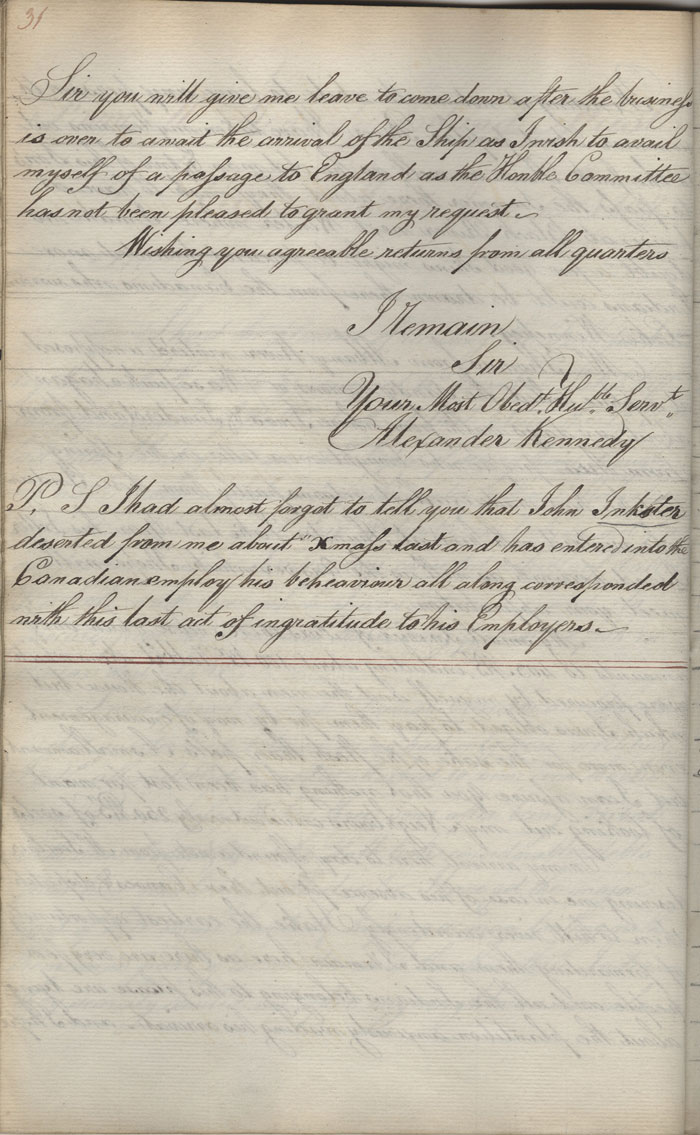 31
Sir you will give me leave to come down after the business
is over to await the arrival of the Ship as I wish to avail
myself of a passage to England as the Honble Committee
has not been pleased to grant my request.
Wishing you agreeable returns from all quarters
I Remain
Sir
Your Most Obedt. Hubb. Servt.
Alexander Kennedy
P. S I had almost forgot to tell you that John Inkster
deserted from me about Xmass last and has entered into the
Canadian employ his beheaviour all along corresponded
with this last act of ingratitude to his Employers.